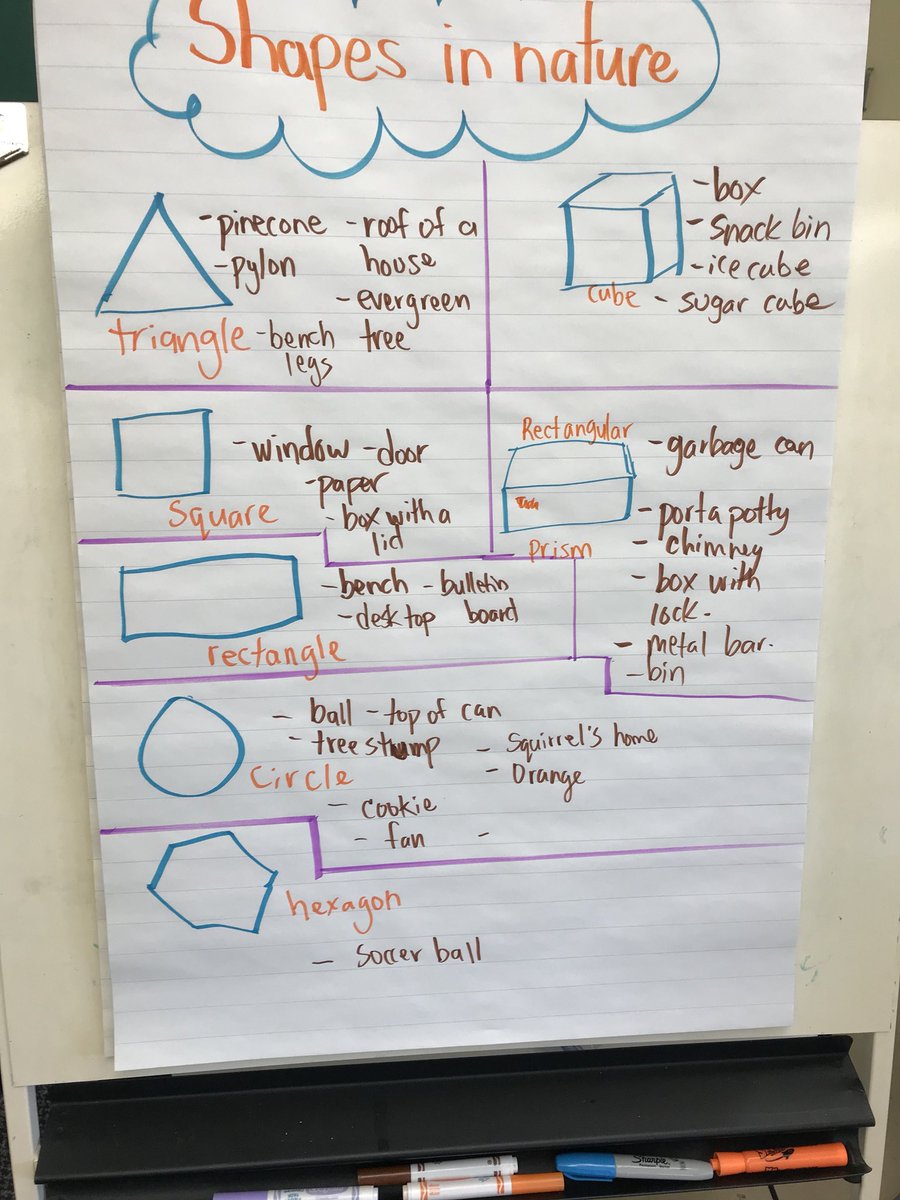 Shapes in nature
-pinecone -roof of a
-pylon house
-evergreen
triangle -bench tree
legs
-box
-Snack bin
-ice cube
cube - sugar cube
-window -door
-paper
Square -box with a
lid
Rectangular
-garbage can
-porta potty
prism - chimney
-box with
lock.
-metal bar.
-bin
-bench -bulletin
-desktop board
rectangle
- ball -top of can
-tree stump - Squirrel's home
Circle - Orange
- cookie
- fan -
hexagon
- Soccer ball
Sharpie